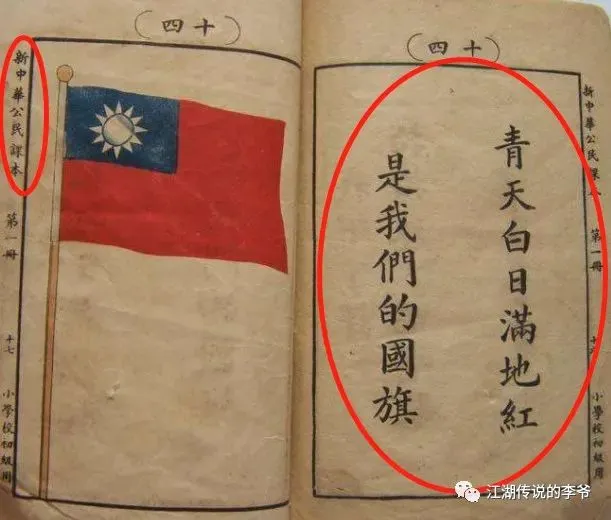 (十四)
新中華公民課本
第一冊
十七
小學校初級用
(十四)
青天白日滿地紅
是我們的國旗
新中華公民課本
第一冊
小學校初級用
江湖传说的李爷